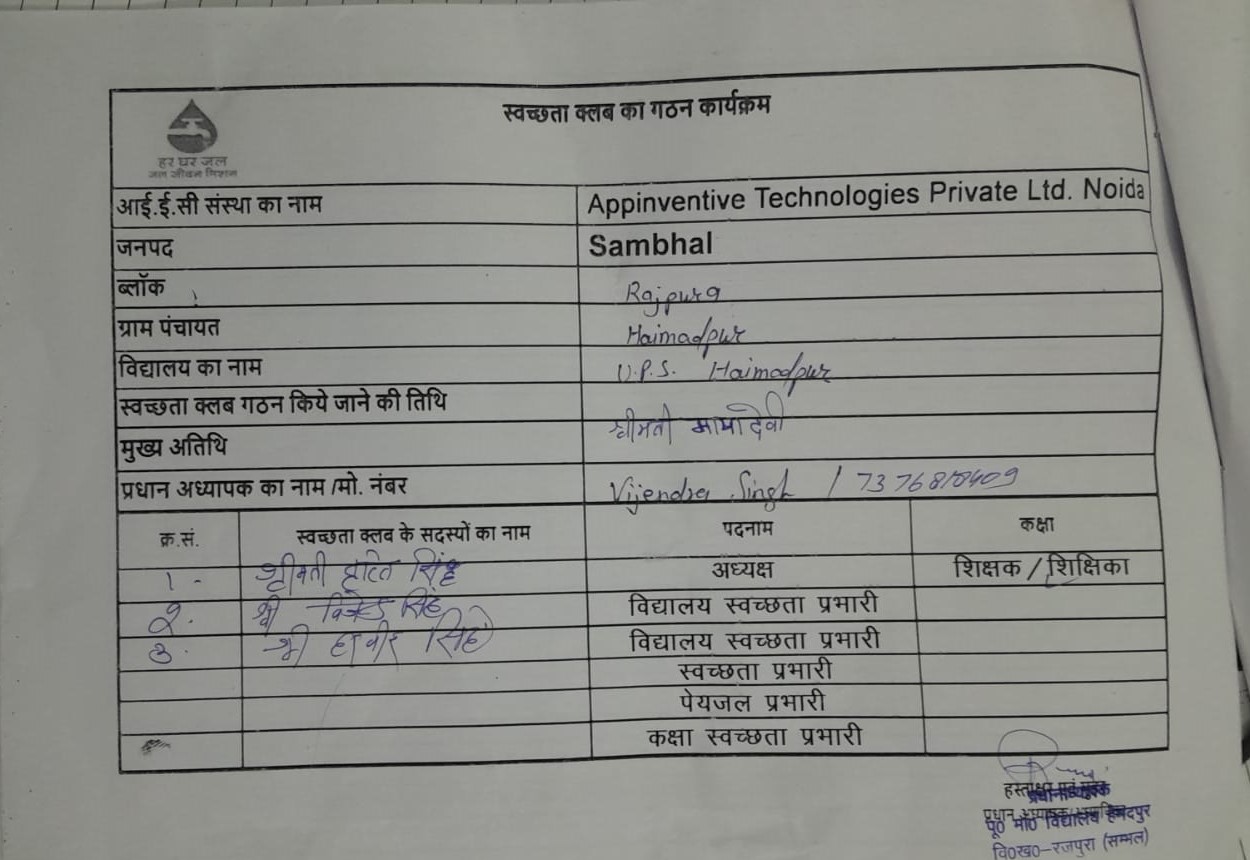 स्वच्छता क्लब का गठन कार्यक्रम
हर घर जल
जल जीवन मिशन
आई.ई.सी संस्था का नाम Appinventive Technologies Private Ltd. Noida
जनपद Sambhal
ब्लॉक Rajpura
ग्राम पंचायत Haimadpur
विद्यालय का नाम U.P.S. Haimadpur
स्वच्छता क्लब गठन किये जाने की तिथि
मुख्य अतिथि श्रीमती मायादेवी
प्रधान अध्यापक का नाम /मो. नंबर Vijendra Singh /
क्र.सं. स्वच्छता क्लब के सदस्यों का नाम पदनाम कक्षा
1 - श्रीमती सिंह अध्यक्ष शिक्षक / शिक्षिका
2. श्री सिंह विद्यालय स्वच्छता प्रभारी
3. श्री सिंह विद्यालय स्वच्छता प्रभारी
स्वच्छता प्रभारी
पेयजल प्रभारी
कक्षा स्वच्छता प्रभारी
हस्ताक्षर एवं मुहर
प्रधानाध्यापक
प्रधान अध्यापक
पू० मा० विद्यालय हैमदपुर
वि०ख०-रजपुरा (सम्भल)